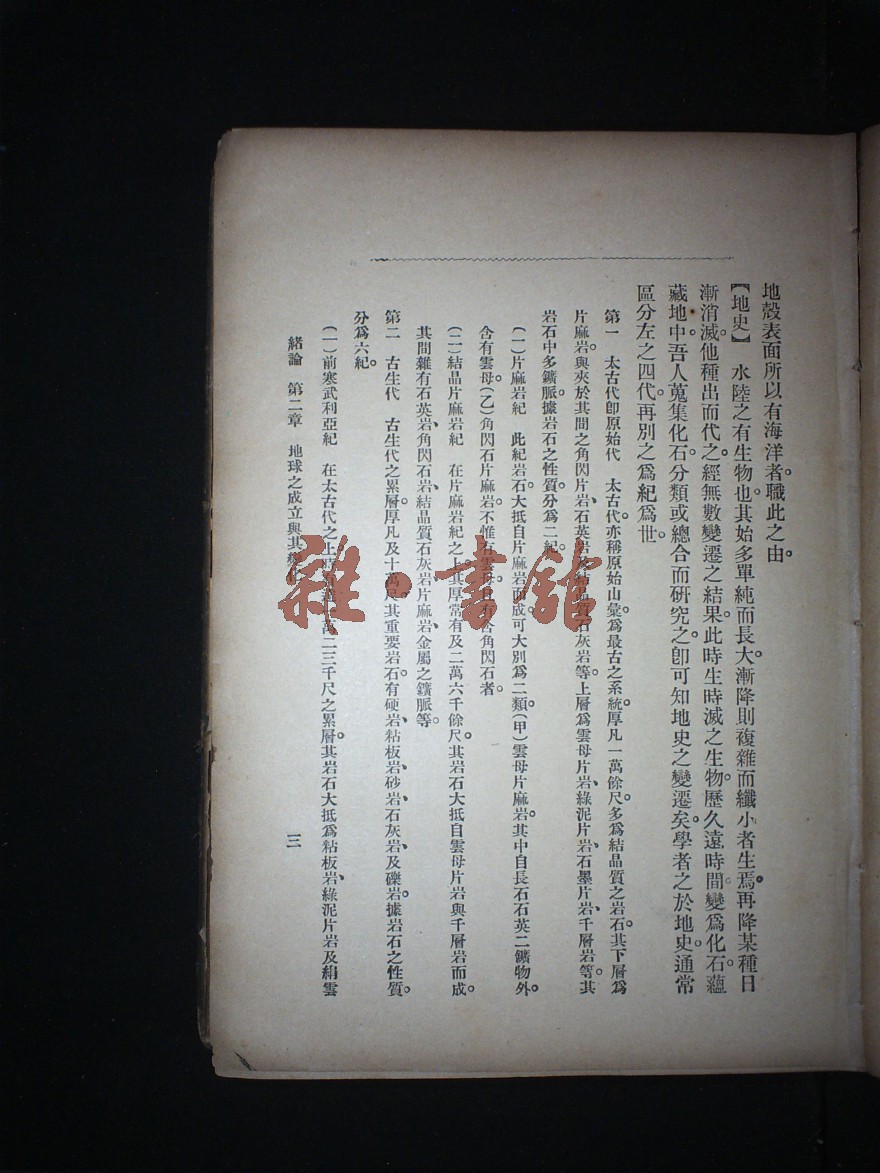 地殼表面所以有海洋者。職此之由。
【地史】 水陸之有生物也。其始多單純而長大。漸降則複雜而纖小者生焉。再降某種日
漸消滅。他種出而代之。經無數變遷之結果。此時生時滅之生物。歷久遠時間。變爲化石。蘊
藏地中。吾人蒐集化石。分類或總合而研究之。卽可知地史之變遷矣。學者之於地史。通常
區分左之四代。再別之爲紀爲世。
第一 太古代卽原始代 太古代。亦稱原始山彙。爲最古之系統。厚凡一萬餘尺。多爲結晶質之岩石。其下層爲
片麻岩。與夾於其間之角閃片岩、石英岩及結晶質石灰岩等。上層爲雲母片岩、綠泥片岩、石墨片岩、千層岩等。其
岩石中多鑛脈。據岩石之性質。分爲二紀。
(一)片麻岩紀 此紀岩石。大抵自片麻岩而成。可大別爲二類。(甲)雲母片麻岩。其中自長石石英二鑛物外。
含有雲母。(乙)角閃石片麻岩。不惟有雲母。且有含角閃石者。
(二)結晶片麻岩紀 在片麻岩紀之上。其厚常有及二萬六千餘尺。其岩石大抵自雲母片岩與千層岩而成。
其間雜有石英岩、角閃石岩、結晶質石灰岩、片麻岩、金屬之鑛脈等。
第二 古生代 古生代之累層。厚凡及十萬尺。其重要岩石。有硬岩、粘板岩、砂岩、石灰岩、及礫岩。據岩石之性質。
分爲六紀。
(一)前寒武利亞紀 在太古代之上。時 萬二三千尺之累層。其岩石大抵爲粘板岩、綠泥片岩及絹雲
緒論 第二章 地球之成立與其變 三
雜·書館